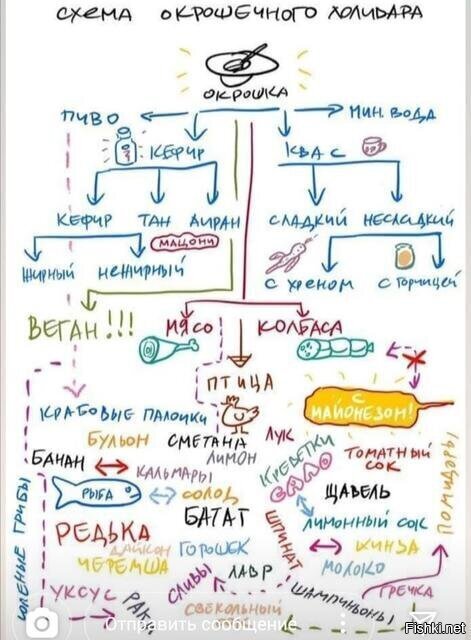 схема окрошечного холивара
окрошка
пиво
мин. вода
кефир
квас
кефир тан айран
сладкий несладкий
мацони
жирный нежирный
с хреном с горчицей
веган!!!
мясо колбаса
птица
с майонезом!
крабовые палочки
бульон сметана лук
лимон
томатный сок
банан кальмары
креветки
щавель
рыба солод
батат
лимонный сок
помидоры
соленые грибы
редька
дайкон горошек
шпинат
кинза
черемша
молоко
сливы лавр
гречка
уксус раки
шампиньоны
свекольный
Отправить сообщение
Fishki.net